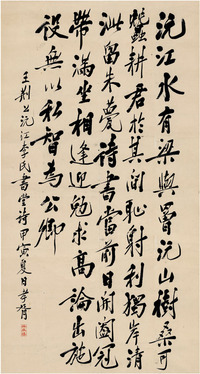 沅江水有梁與罾沅山樹桑可
蠶耕君於其間恥射利獨岸清
沚留朱甍詩書當前日開闔冠
帶滿坐相逢迎勉求高論出施
設無以私智為公卿
王荊公沅江李氏書堂詩甲寅夏日孝胥